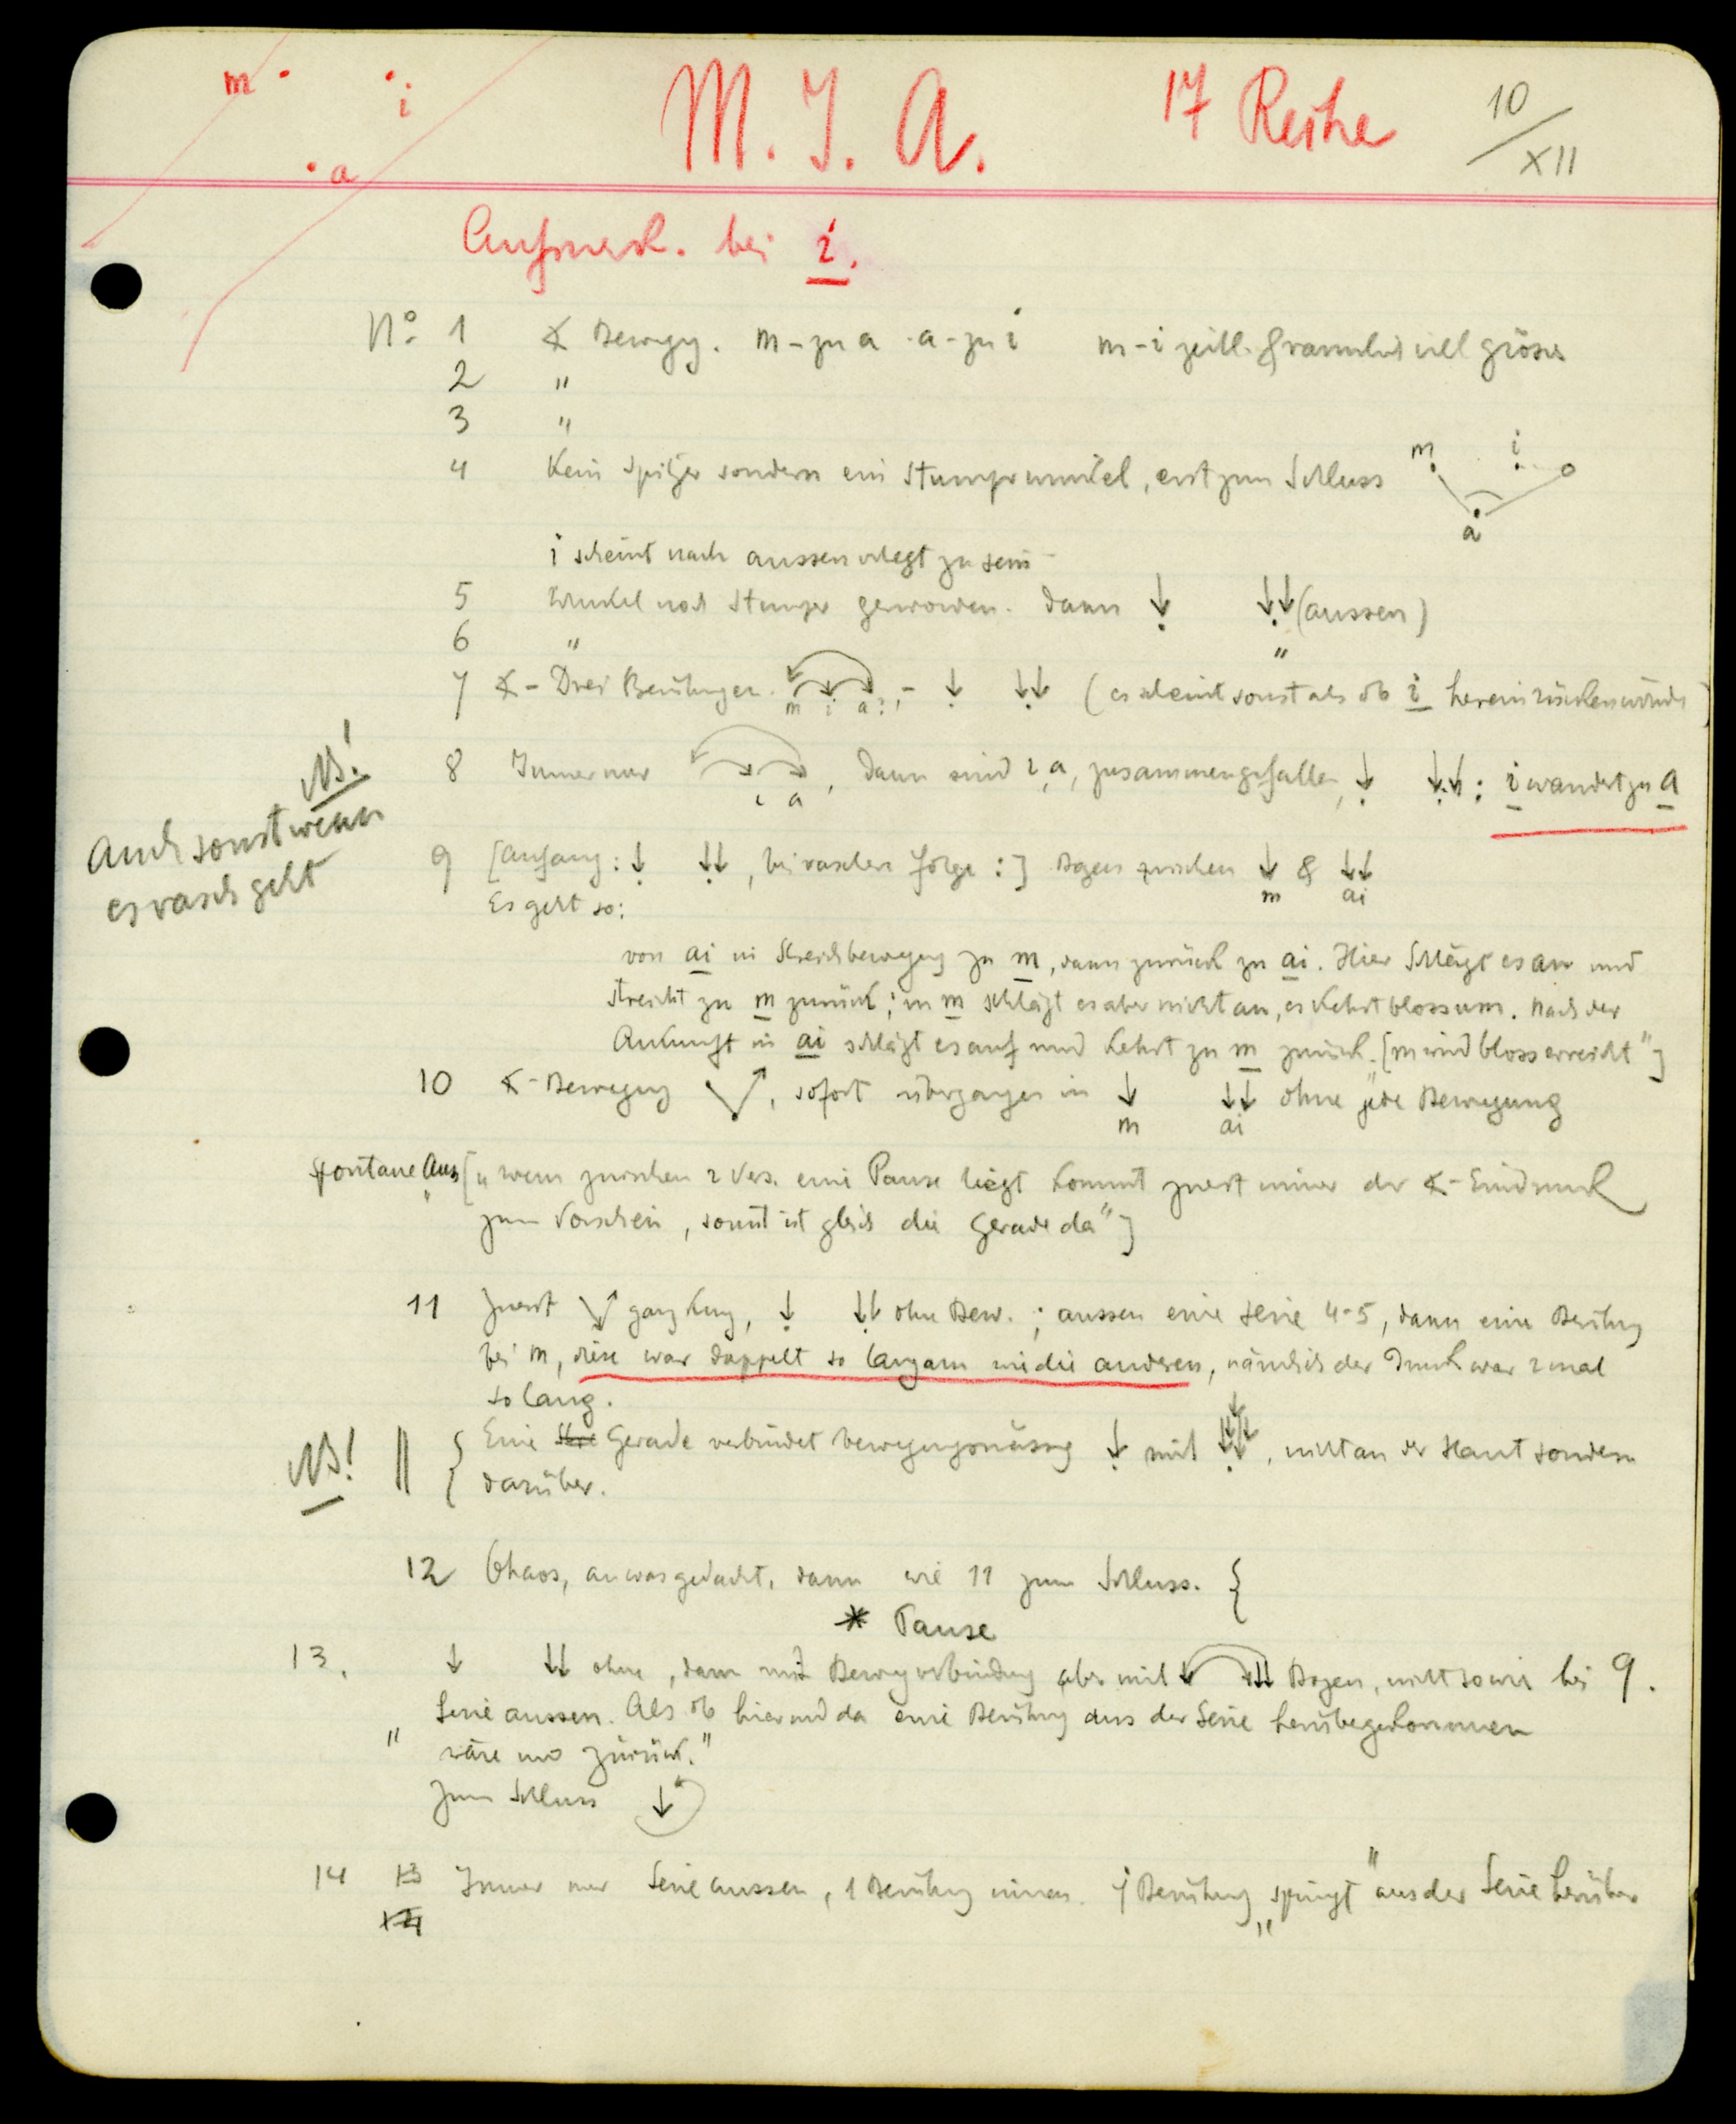 m · · i
· a
M. J. A. 17 Reihe 10/XII
Aufmerk. bei i.
No. 1 ∢ Bewegg. m-zu a · a-zu i m-i zeitl. & raumlich viel gröser
2 "
3 "
4 Kein spitzer sondern ein Stumpfwinkel, erst zum Schluss m i a
i scheint nach aussen verlegt zu sein
5 Winkel noch stumpfer geworden. dann ↓ ↓↓ (aussen)
6 " "
7 ∢ - Drei Berührungen. m i a ; - ↓ ↓↓ (es scheint sonst als ob i hereinrücken würde)
8 Immer nur i a , dann sind i, a, zusammengefallen, ↓ ↓↓ : i wandert zu a
NB!
Auch sonst wenn
es rasch geht
9 [Anfang: ↓ ↓↓, bei rascher folge :] Bogen zwischen ↓ & ↓↓
m ai
Es geht so:
von ai in Streichbewegung zu m, dann zurück zu ai. Hier schlägt es an und
streicht zu m zurück; in m schlägt es aber nicht an, es kehrt bloss um. Nach der
Ankunft in ai schlägt es auf und kehrt zu m zurück. [m wird bloss „erreicht"]
10 ∢-Bewegung , sofort übergangen in ↓ ↓↓ ohne jede Bewegung
m ai
Spontane Aus [„wenn zwischen 2 Vers. eine Pause liegt kommt zuerst immer der ∢-Eindruck
zum Vorschein, sonst ist gleich die Gerade da"]
11 Zuerst ganz kurz, ↓ ↓↓ ohne Bew. ; aussen eine Serie 4-5, dann eine Berührung
bei m, diese war doppelt so langsam wie die anderen, nämlich der Druck war 2 mal
so lang.
NB! || { Eine Gerade verbindet bewegungsmässig ↓ mit ↓↓↓, nicht an der Haut sondern
darüber.
12 Chaos, an was gedacht, dann wie 11 zum Schluss. }
* Pause
13. ↓ ↓↓ ohne, dann mit Bewegverbindung aber mit ↓ ↓↓ Bogen, nicht so wie bei 9.
Serie aussen. Als ob hier und da eine Berührung aus der Serie herübergekommen
" wäre und zurück."
Zum Schluss ↓
14 13 Immer nur Serie aussen, 1 Berührung innen. 1 Berührung „springt" aus der Serie herüber
14